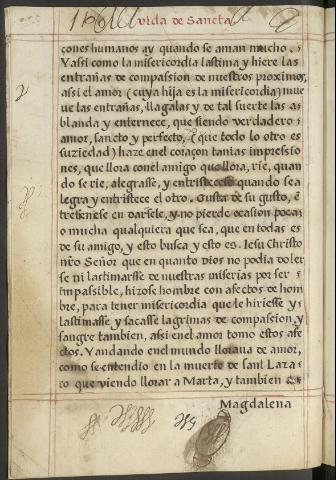 Vida de Sancta
çones humanos ay quando se aman mucho.
Yassi como la misericordia lastima y hiere las
entrañas de compassion de nuestros proximos,
assi el amor (cuya hija es la misericordia) mue
ue las entrañas, llagalas y de tal suerte las a-
blanda y enternece, que siendo verdadero
amor, sancto y perfecto, (que todo lo otro es
suziedad) haze enel coraçon tantas impressio
nes, que llora conel amigo que llora, rie, quan
do se rie, alegrasse, y entristecese quando se a
legra y entristece el otro. Gusta de su gusto, en
tretienese en darsele, y no pierde ocasion poca
o mucha qualquiera que sea, que en todas es
de su amigo, y esto busca y esto es. Iesu Christo
nr̃o Señor que en quanto Dios no podia doler
se ni lastimarse de nuestras miserias por ser
impassible, hizose hombre con afectos de hom
bre, para tener misericordia que le hiriesse y
lastimasse, y sacasse lagrimas de compassion, y
sangre tambien, assi enel amor tomo estos afe
ctos. Yandando enel mundo lloraua de amor,
como se entendio en la muerte de sant Laza
ro que viendo llorar a Marta, y tambien a
Magdalena